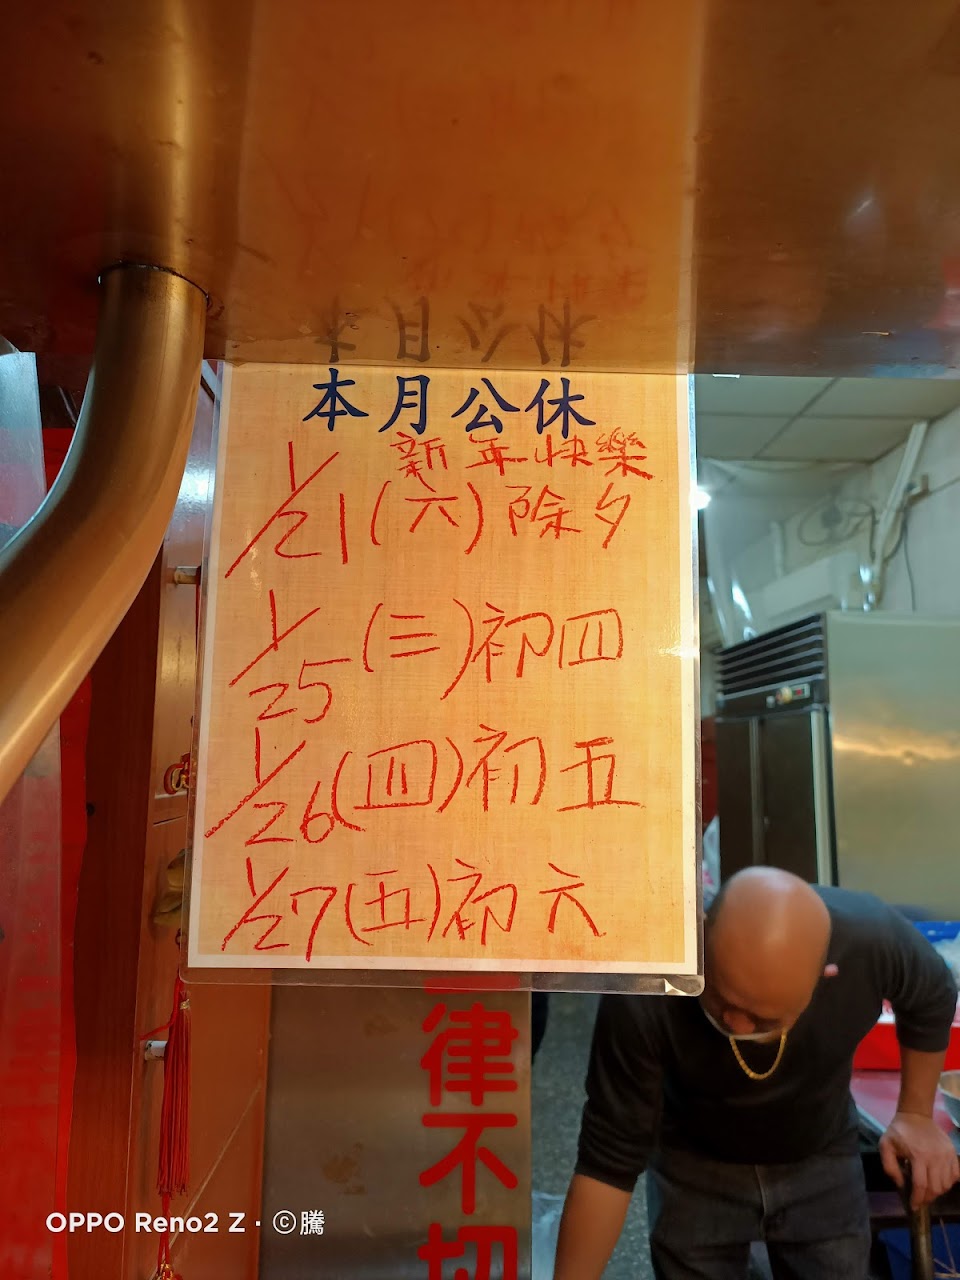 本月公休
新年快樂
1/21(六)除夕
1/25(三)初四
1/26(四)初五
1/27(五)初六
律不切
OPPO Reno2 Z · ⓒ騰